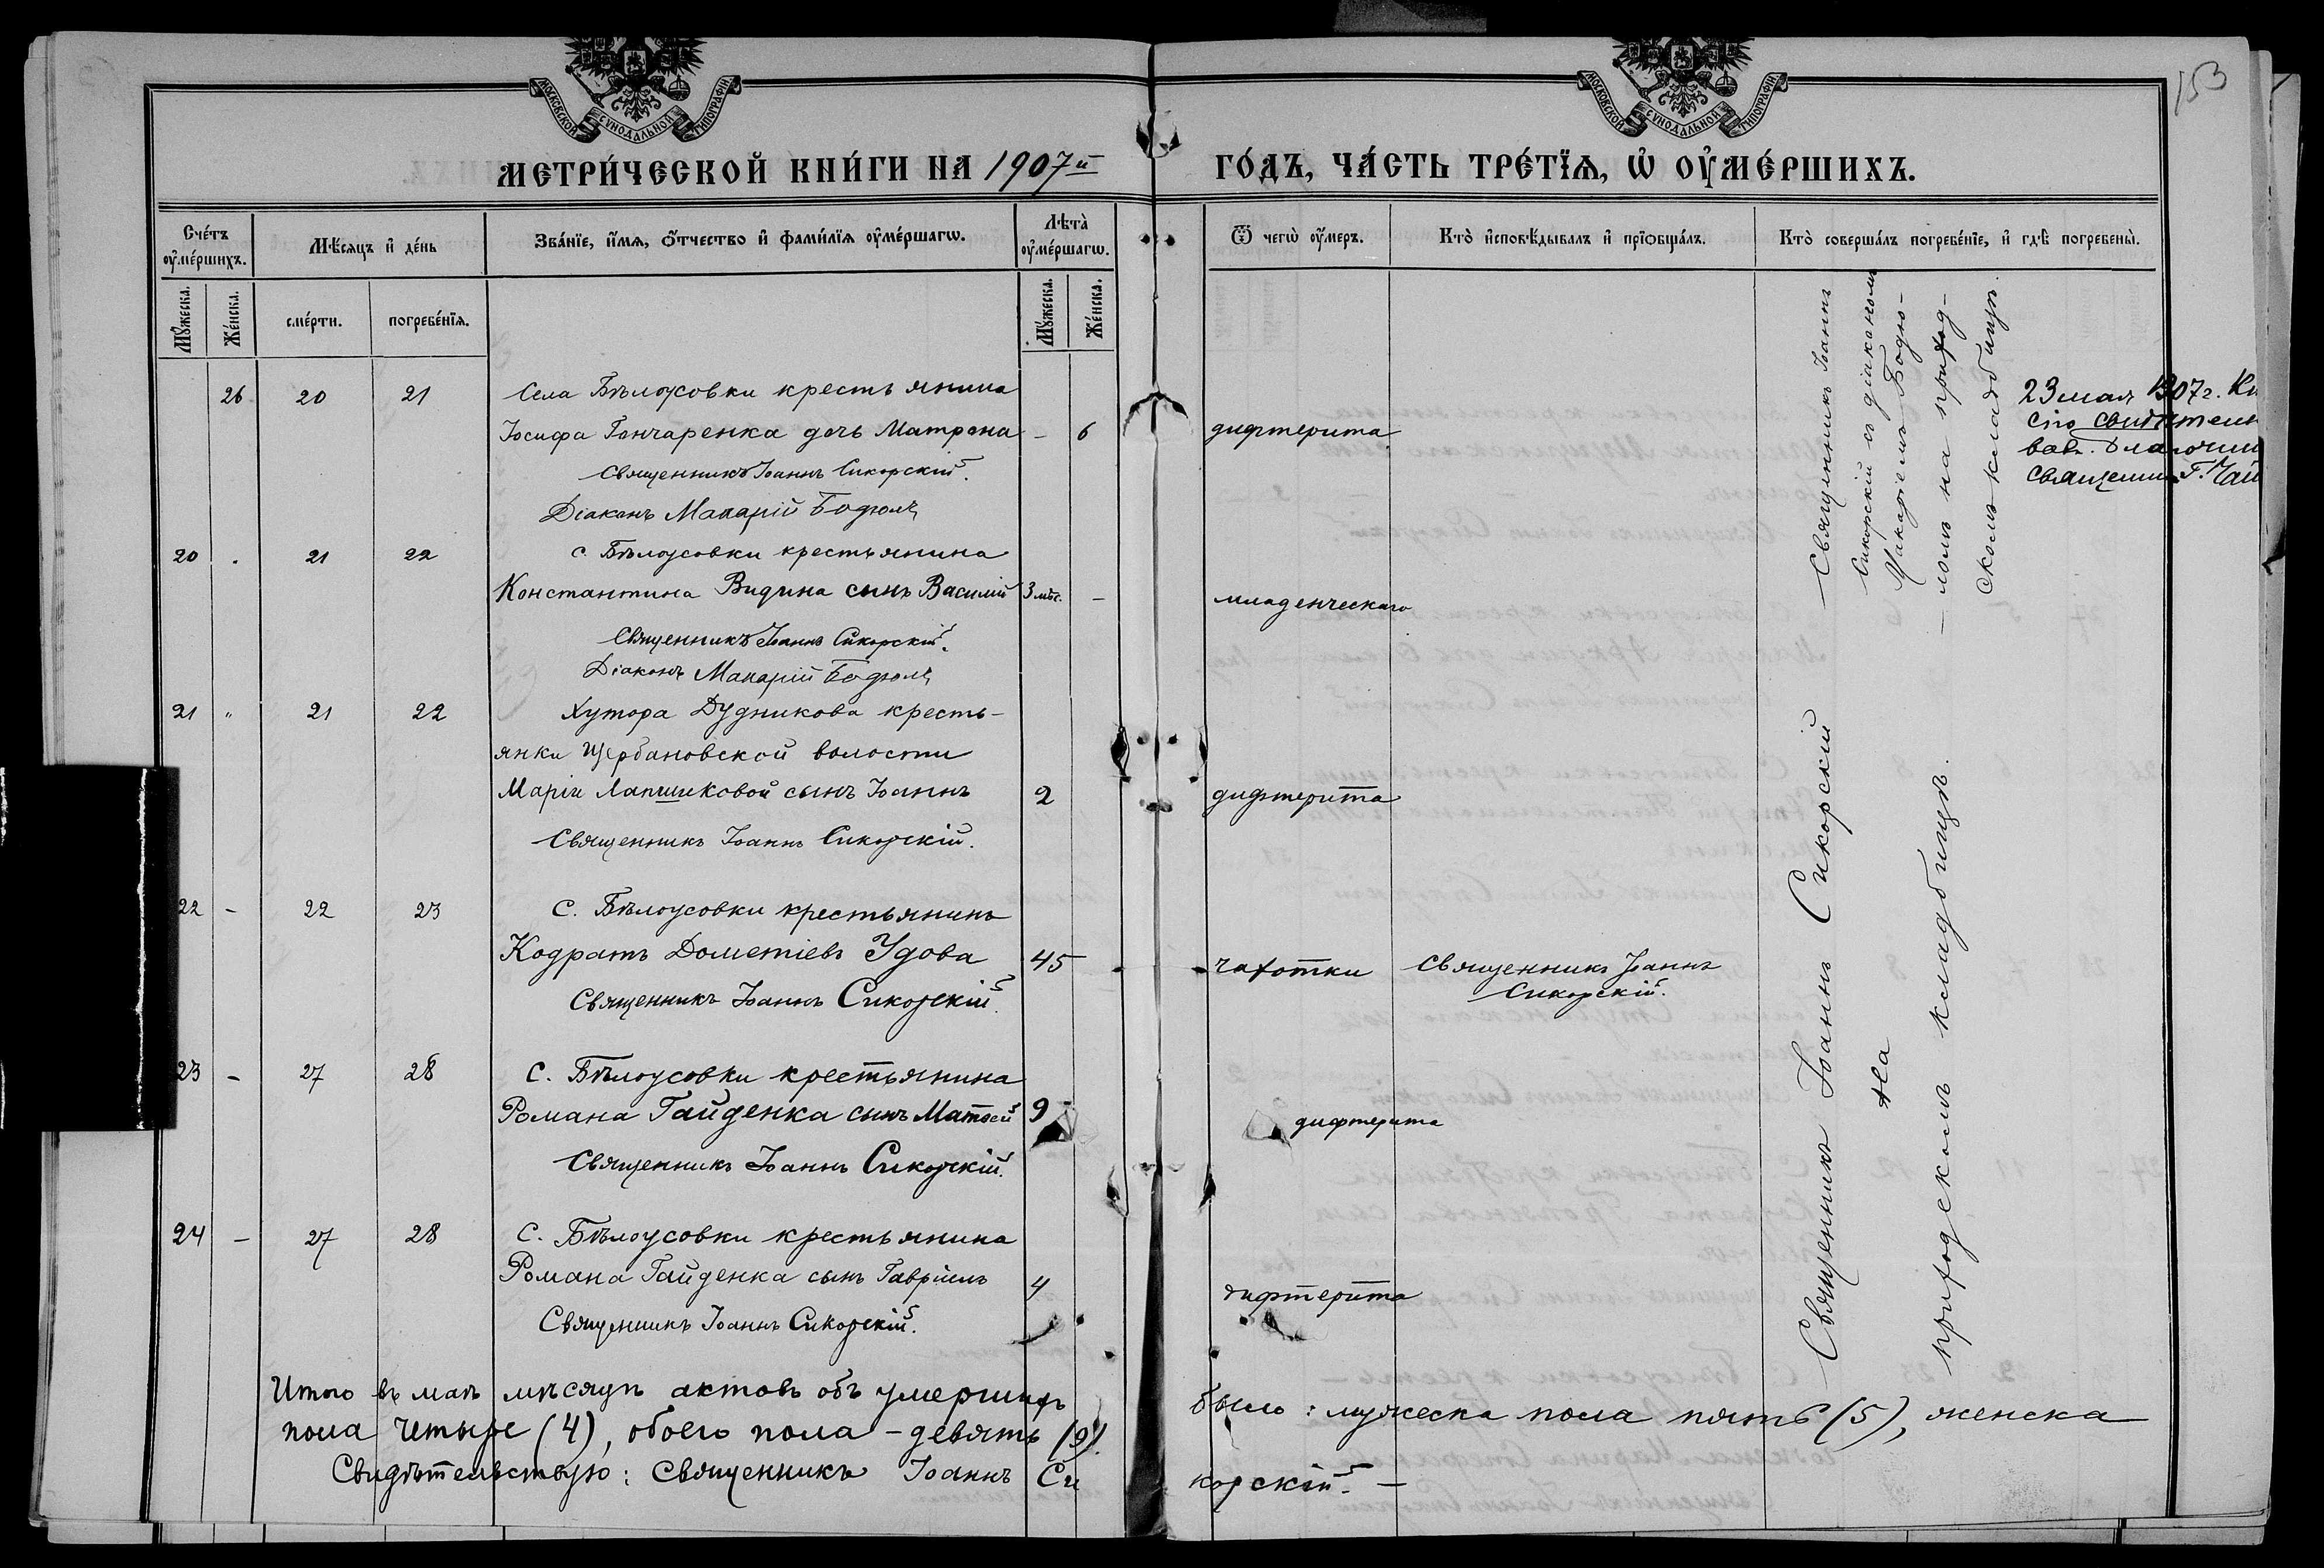 153
МОСКОВСКОЙ СѴНОДАЛЬНОЙ ТИПОГРАФІИ.
МОСКОВСКОЙ СѴНОДАЛЬНОЙ ТИПОГРАФІИ.
МЕТРИ́ЧЕСКОЙ КНИ́ГИ НА 1907й ГО́ДЪ, ЧА́СТЬ ТРЕ́ТЇѦ, Ѡ҆ ОУ҆МЕ́РШИХЪ.
Сче́тъ оу҆ме́ршихъ.
Мѣ́сяцъ и҆ де́нь
Зва́нїе, и҆́мя, ѻ҆́тчество и҆ фами́лїя оу҆ме́ршагѡ.
Лѣта̀ оу҆ме́ршагѡ.
Ѿ чегѡ̀ оу҆́меръ.
Кто̀ и҆сповѣ́дывалъ и҆ прїѡбща́лъ.
Кто̀ соверша́лъ погребе́нїе, и҆ гдѣ̀ погребены̀.
Мꙋ́жеска.
Же́нска.
сме́рти.
погребе́нїя.
Мꙋ́жеска.
Же́нска.
26 20 21 Села Бѣлоусовки крестьянина
Іосифа Гончаренка дочь Матрона - 6 дифтерита
Священникъ Іоаннъ Сикорскій.
Діаконъ Макарій Бодюлъ
20 . 21 22 с. Бѣлоусовки крестьянина
Константина Видина сынъ Василій 3 мѣс. - младенческаго
Священникъ Іоаннъ Сикорскій.
Діаконъ Макарій Бодюлъ
21 " 21 22 Хутора Дудникова кресть-
янки Щербановской волости
Маріи Лапшиковой сынъ Іоаннъ 2 дифтерита
Священникъ Іоаннъ Сикорскій.
22 - 22 23 С. Бѣлоусовки крестьянинъ
Кодратъ Дометіевъ Удова 45 чахотки Священникъ Іоаннъ
Сикорскій.
Священникъ Іоаннъ Сикорскій.
23 - 27 28 С. Бѣлоусовки крестьянина
Романа Гайденка сынъ Матвей 9 дифтерита
Священникъ Іоаннъ Сикорскій.
24 - 27 28 С. Бѣлоусовки крестьянина
Романа Гайденка сынъ Гавріилъ 4 дифтерита
Священникъ Іоаннъ Сикорскій.
Священникъ Іоаннъ
Сикорскій съ діакономъ
Макаріемъ Бодю-
-ломъ на приход-
скомъ кладбищѣ.
23 мая 1907 г.
сію свидѣтель
вов. Благочин
священник Г.
Священникъ Іоаннъ Сикорскій
На
приходскомъ кладбищѣ.
Итого въ маѣ мѣсяцѣ актовъ объ умершихъ было: мужеска пола пять (5), женска
пола четыре (4), обоего пола - девять (9).
Свидѣтельствую: Священникъ Іоаннъ Сикорскій. -